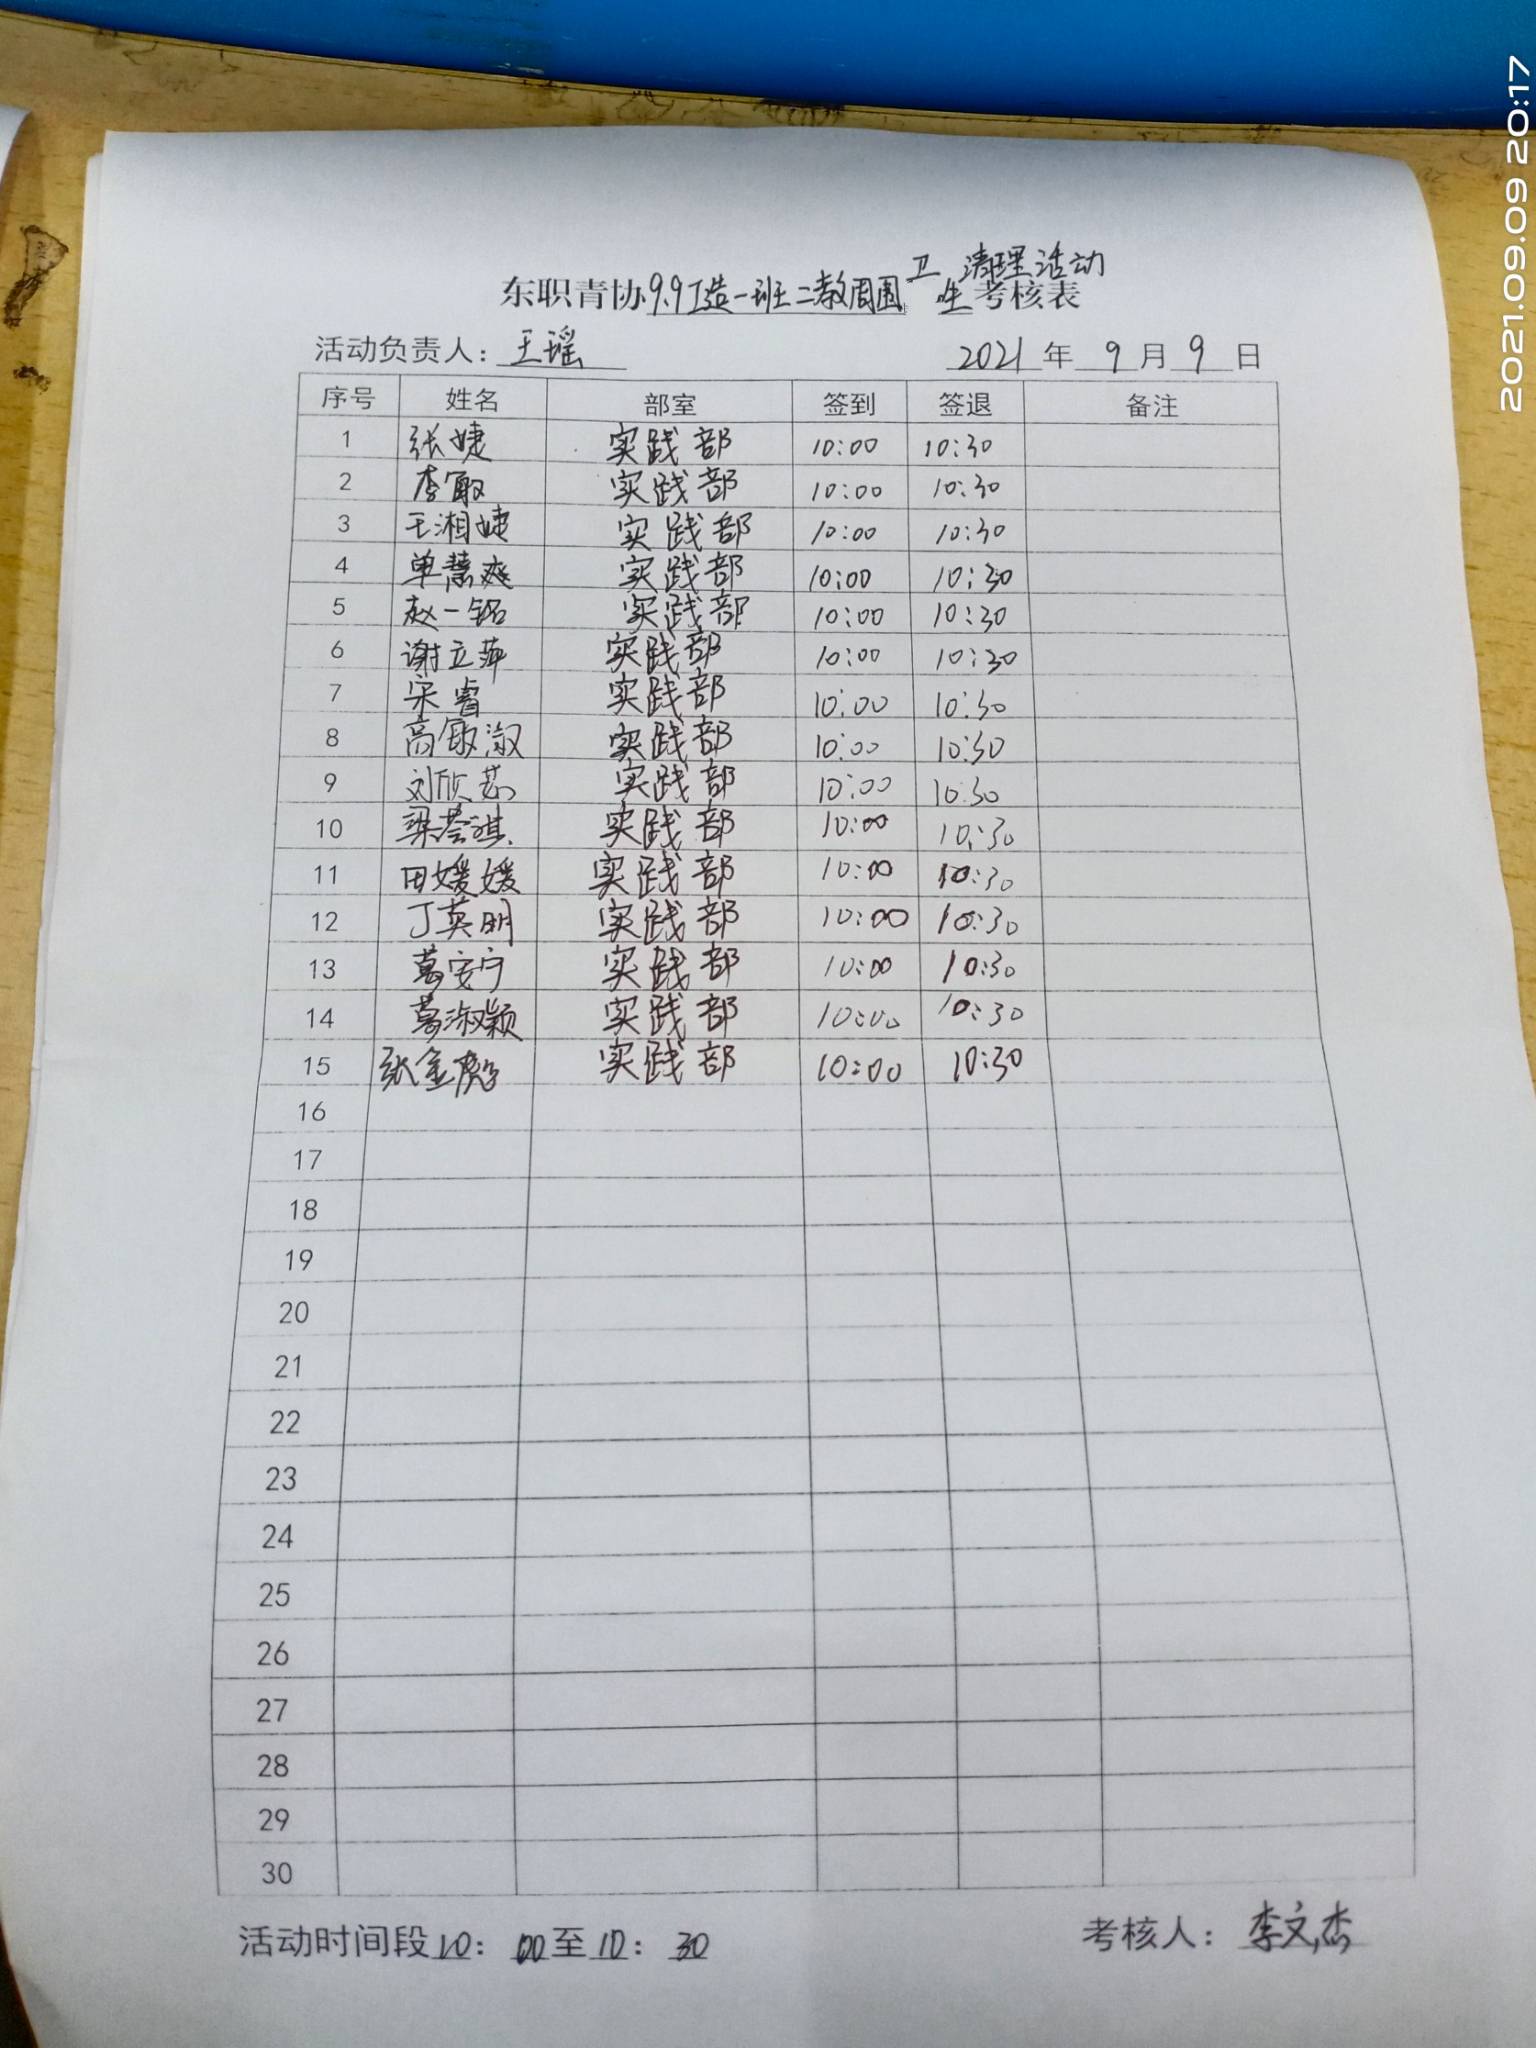 2021.09.09 20:17
卫 清理活动
东职青协9.9工造一班二教周围生考核表
活动负责人：王瑶 2021年9月9日
序号 姓名 部室 签到 签退 备注
1 张婕 实践部 10:00 10:30
2 李敏 实践部 10:00 10:30
3 王湘婕 实践部 10:00 10:30
4 单慧爽 实践部 10:00 10:30
5 赵一铭 实践部 10:00 10:30
6 谢立萍 实践部 10:00 10:30
7 宋睿 实践部 10:00 10:30
8 高敏淑 实践部 10:00 10:30
9 刘欣 实践部 10:00 10:30
10 梁荟淇 实践部 10:00 10:30
11 田媛媛 实践部 10:00 10:30
12 丁英明 实践部 10:00 10:30
13 葛安宁 实践部 10:00 10:30
14 葛淑颖 实践部 10:00 10:30
15 张金 实践部 10:00 10:30
16
17
18
19
20
21
22
23
24
25
26
27
28
29
30
活动时间段10：00至10：30 考核人：李文杰